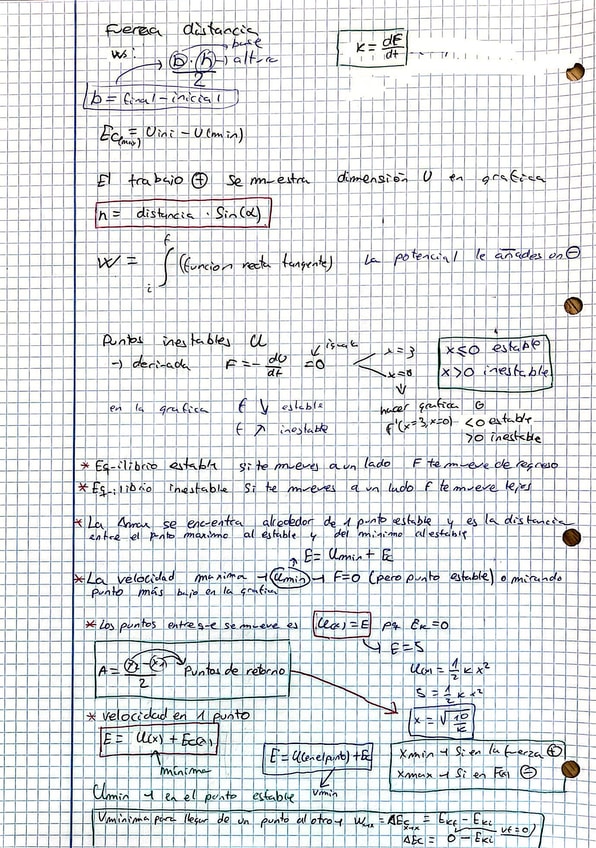 fuerza distancia
Ws: b · h → altura
base
2
b = final - inicial
K = dF/dt
Ec(max) = Uini - U(min)
El trabajo ⊕ se muestra dimensión U en grafica
h = distancia · Sin(α)
W = ∫ i f (funcion recta tangente) la potencial le añades un ⊖
Puntos inestables U
→ derivada F = - dU/dt = 0 igual x = 3 x = 0
x ≤ 0 estable
x > 0 inestable
en la grafica f ↓ estable
f ↗ inestable
hacer grafica o
f'(x=3, x=0) < 0 estable
> 0 inestable
* Equilibrio estable si te mueves a un lado F te mueve de regreso
* Equilibrio inestable si te mueves a un lado F te mueve lejos
* La Amax se encuentra alrededor de 1 punto estable y es la distancia
entre el punto maximo al estable y del minimo al estable
E = Umin + Ec
* La velocidad maxima → Umin → F=0 (pero punto estable) o mirando
punto más bajo en la grafica
* Los puntos entre q-e se mueve es U(x) = E pq Ek = 0
E = 5
A = x2 - x1 / 2 Puntos de retorno
U(x) = 1/2 k x²
5 = 1/2 k x²
x = √10/k
* velocidad en 1 punto
E = U(x) + Ec(x)
minima
E = U(en el punto) + Ec
Vmin
xmin → Si en la fuerza ⊕
xmax → Si en F(x) ⊖
Umin → en el punto estable
Vminima para llegar de un punto al otro → W = ΔEc = Ekf - Eki
ΔEc = 0 - Eki vf = 0)